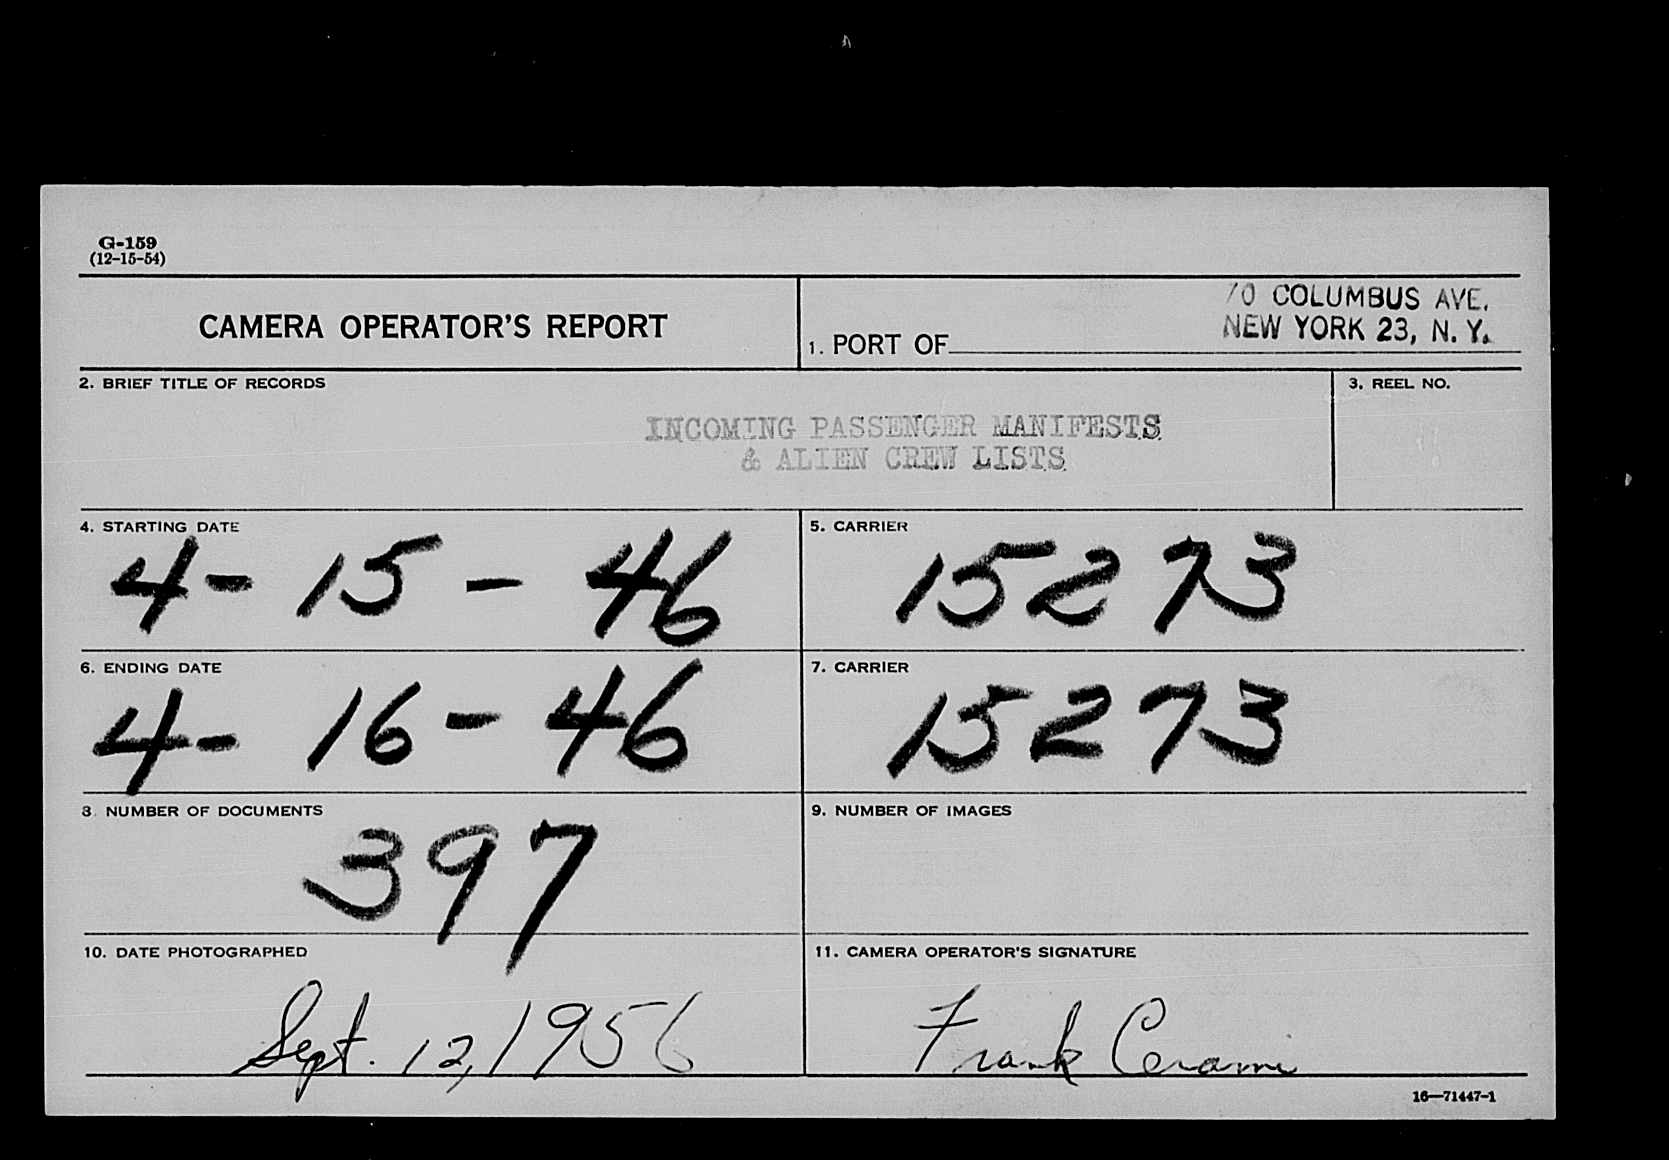 G-159
(12-15-54)
CAMERA OPERATOR'S REPORT
1. PORT OF
70 COLUMBUS AVE.
NEW YORK 23, N. Y.
2. BRIEF TITLE OF RECORDS
INCOMING PASSENGER MANIFESTS
& ALIEN CREW LISTS
3. REEL NO.
4. STARTING DATE
4-15-46
5. CARRIER
15273
6. ENDING DATE
4-16-46
7. CARRIER
15273
8. NUMBER OF DOCUMENTS
397
9. NUMBER OF IMAGES
10. DATE PHOTOGRAPHED
Sept. 12, 1956
11. CAMERA OPERATOR'S SIGNATURE
Frank Cerami
16—71447-1